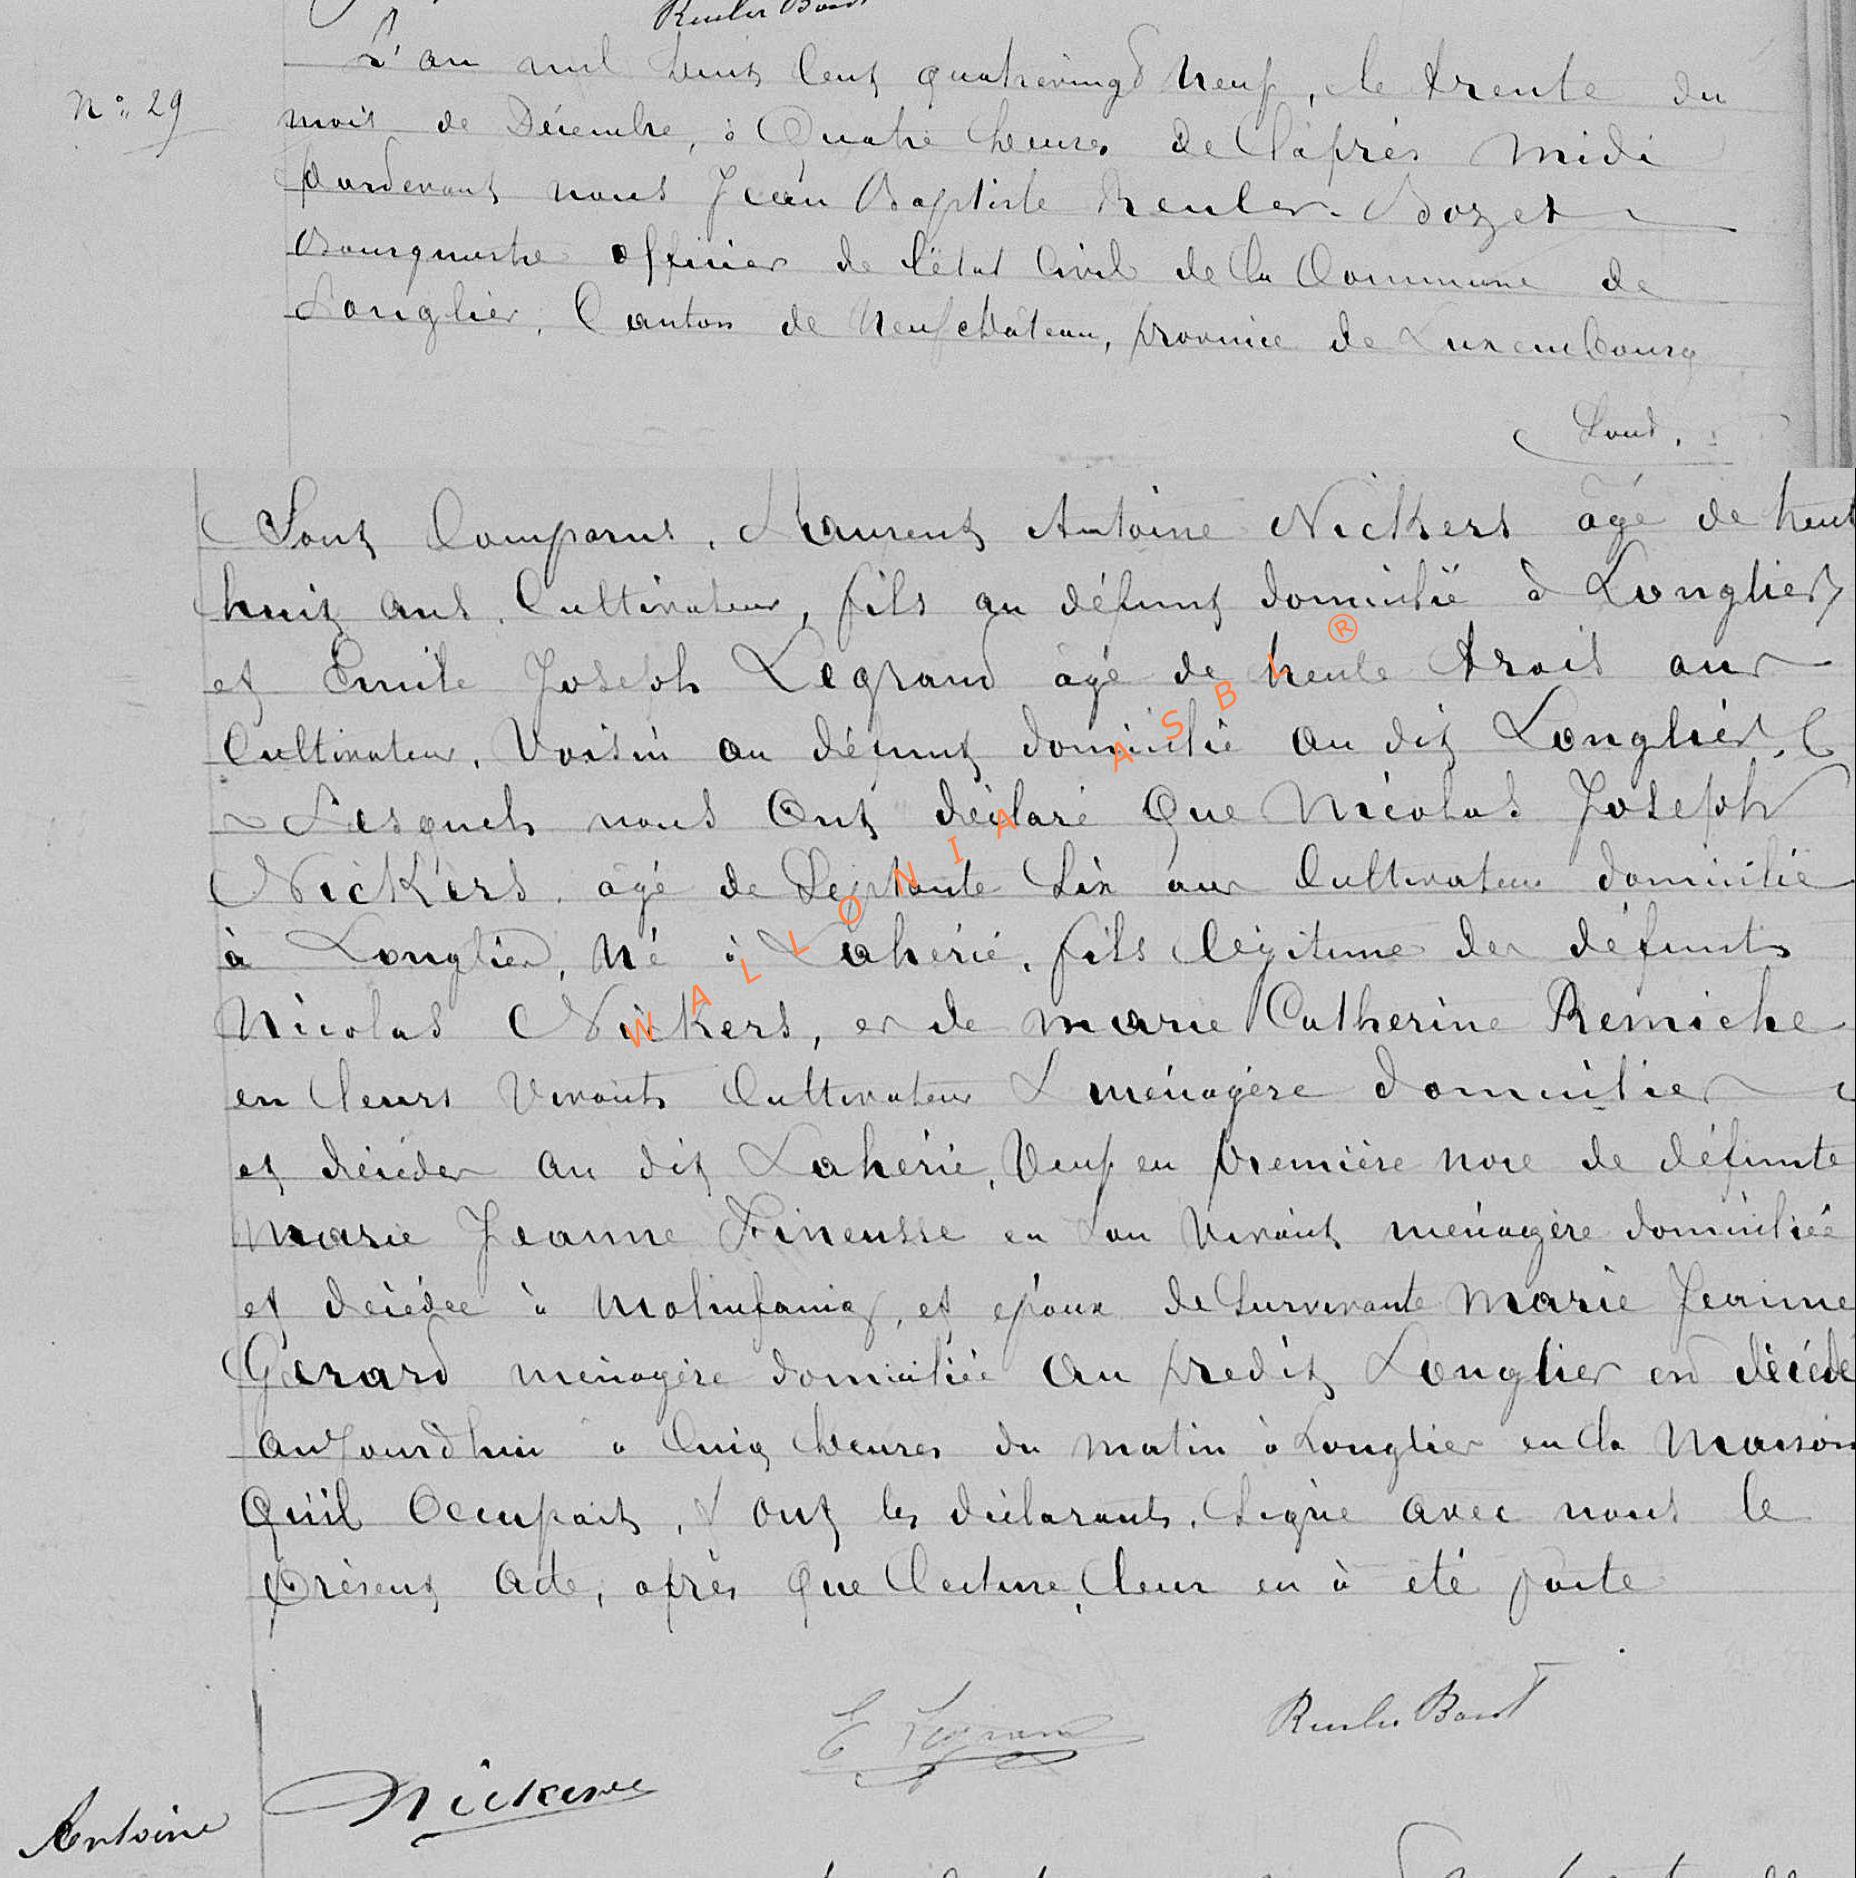 Reuler Bozet
L'an mil huit Cent quatrevingt Neuf, le trente du
N° 29
mois de Décembre, à Quatre heures de l'après midi
pardevant nous Jean Baptiste Reuler-Bozet
Bourgmestre officier de l'état Civil de la Commune de
Longlier, Canton de Neufchâteau, province de Luxembourg
Sont,
Sont Comparus, Laurent Antoine Nickers âgé de trente
huit ans, Cultivateur, fils au défunt domicilié à Longlier
et Emile Joseph Legrand âgé de trente trois ans
Cultivateur, Voisin au défunt domicilié au dit Longlier,
Lesquels nous Ont déclaré Que Nicolas Joseph
Nickers, âgé de Septante Six ans Cultivateur domicilié
à Longlier, Né à Lahérie, fils légitime des défunts
Nicolas Nickers, et de marie Catherine Remiche
en leurs Vivants Cultivateur & ménagère domiciliés
et décédés au dit Lahérie, Veuf en première noce de défunte
Marie Jeanne Fineusse en son Vivant ménagère domiciliée
et décédée à Molinfaing, et époux de Survivante Marie Jeanne
Gérard ménagère domiciliée au predit Longlier est décédé
aujourdhui à Cinq heures du matin à Longlier en la Maison
Qu'il Occupait, & ont les déclarants, Signé avec nous le
Présent acte, après Que lecture, leur en à été faite
E Legrand
Reuler Bozet
Antoine Nickers
WALLONIA ASBL ®